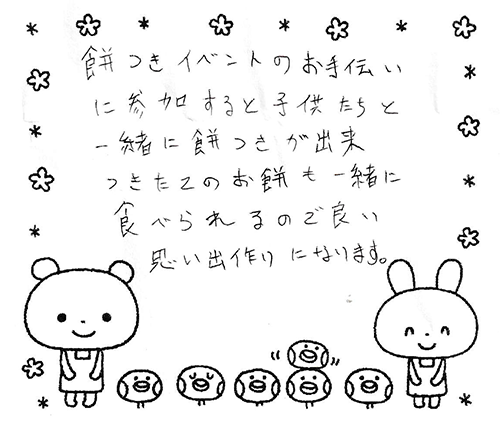 餅つきイベントのお手伝い
に参加すると子供たちと
一緒に餅つきが出来
つきたてのお餅も一緒に
食べられるので良い
思い出作りになります。